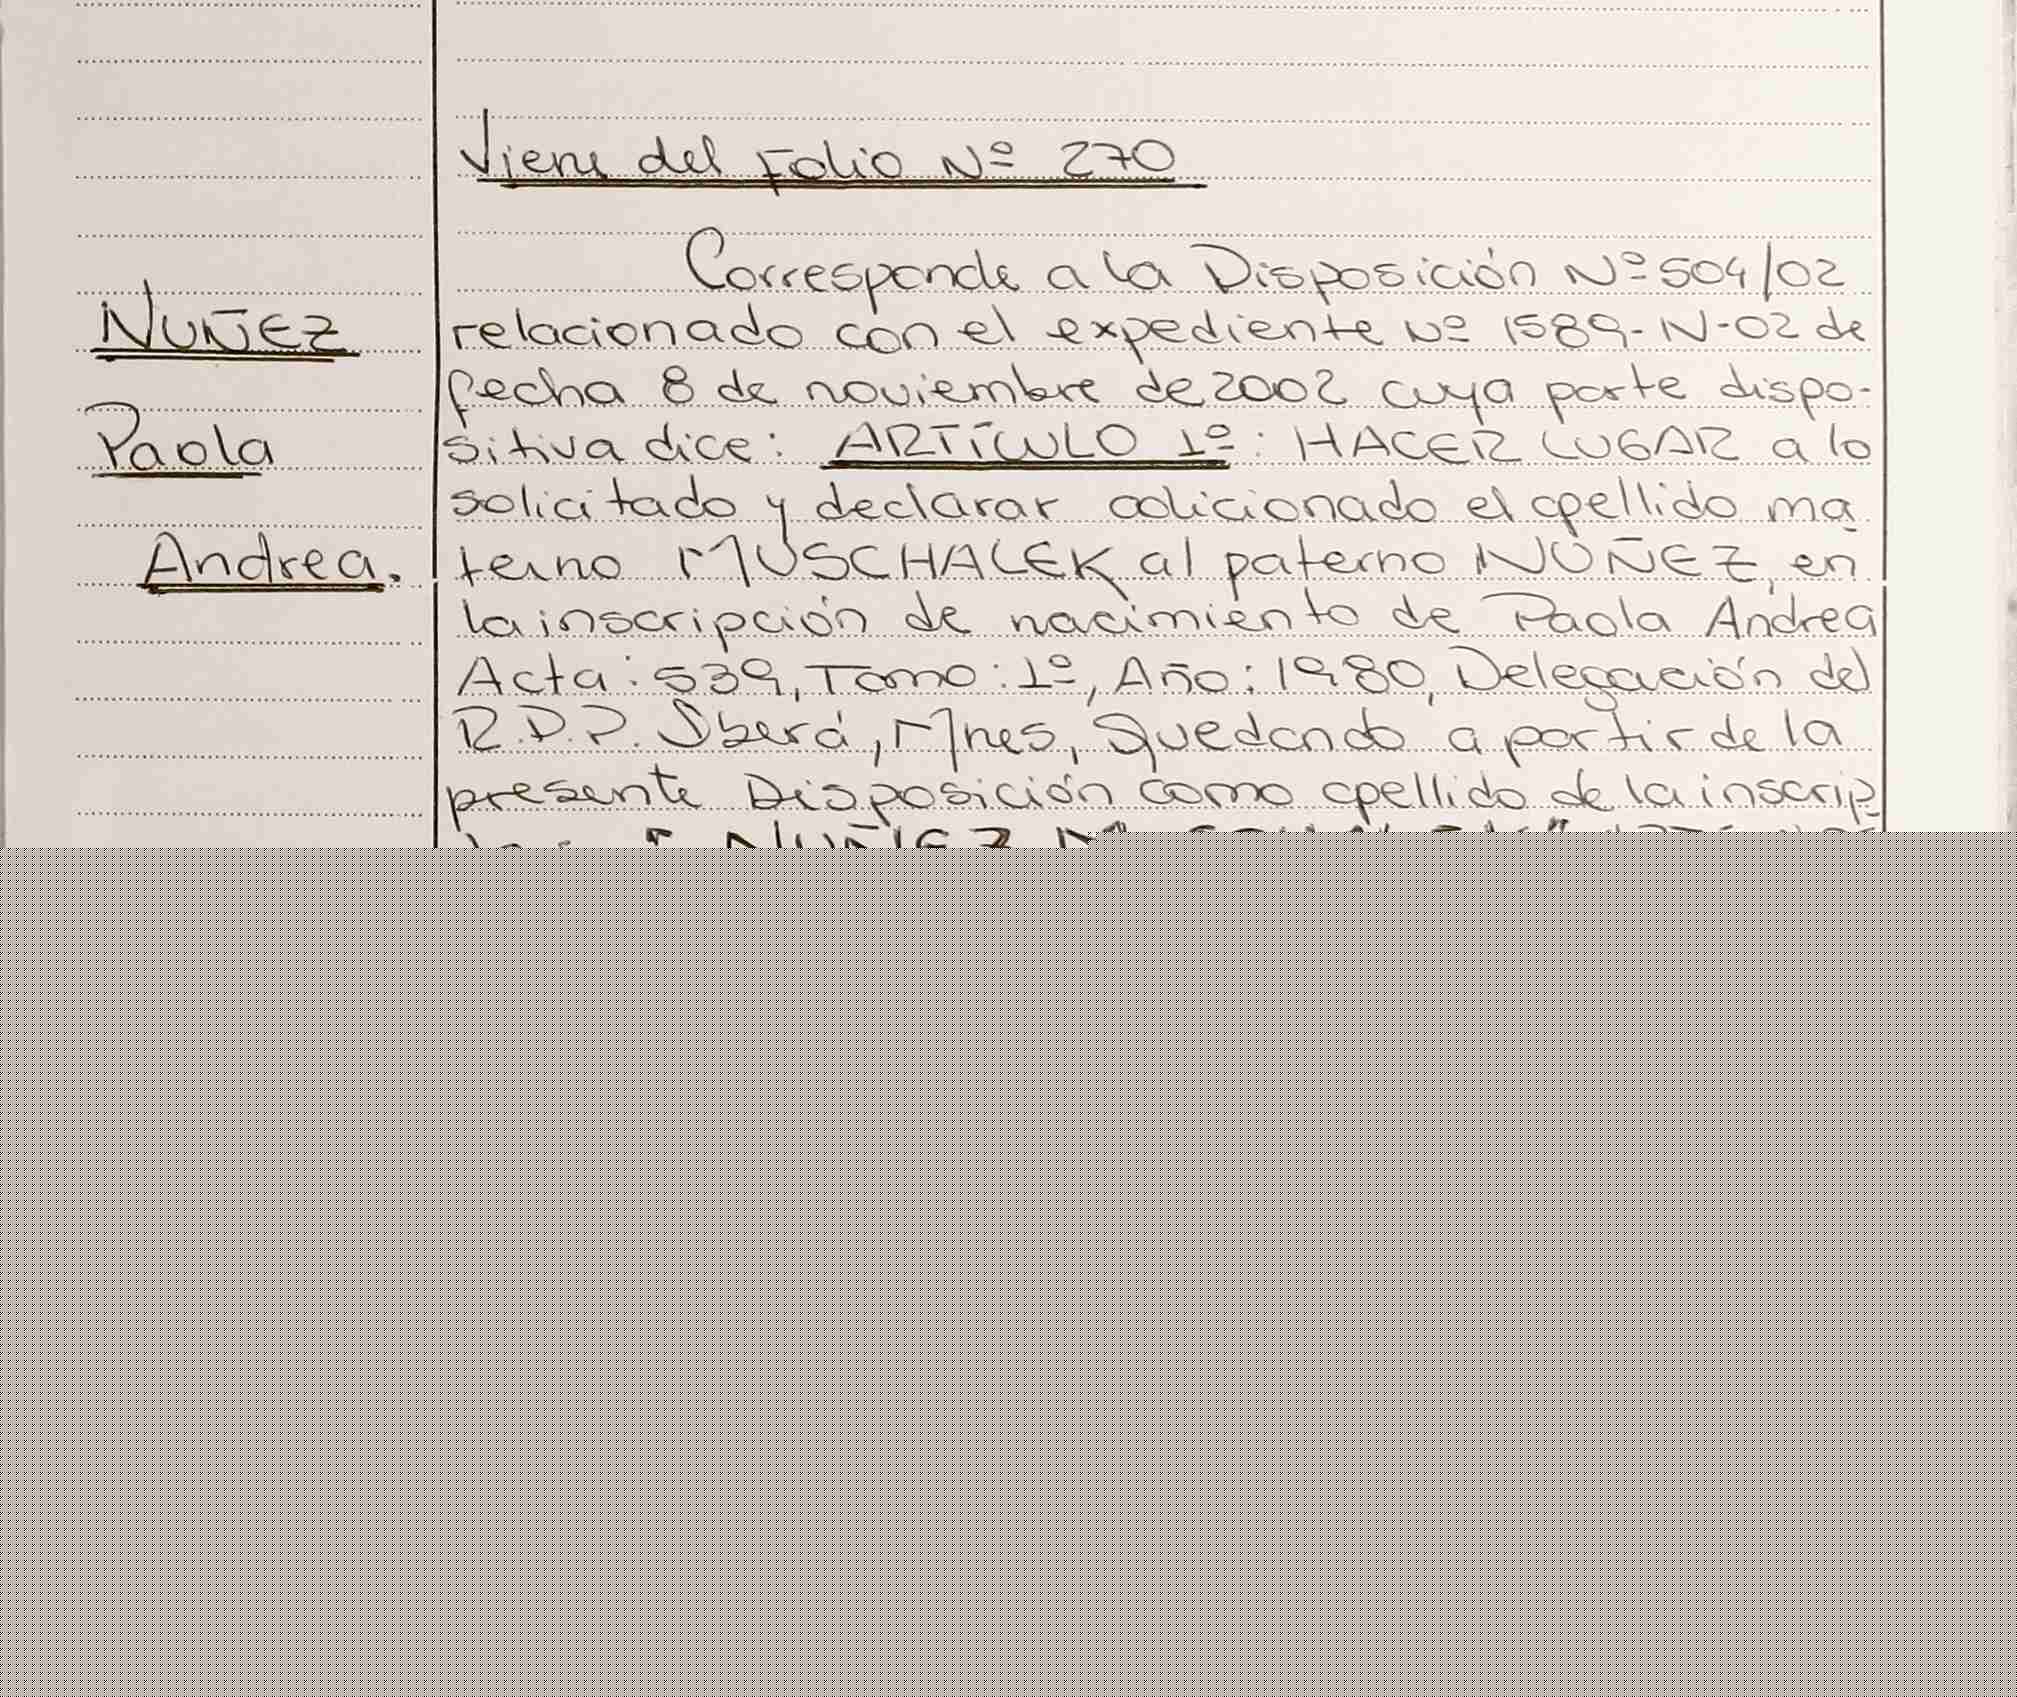 Viene del Folio Nº 270
Corresponde a la Disposición Nº 504/02
NUÑEZ
relacionado con el expediente Nº 1589-N-02 de
fecha 8 de noviembre de 2002 cuya parte dispo-
Paola
sitiva dice: ARTÍCULO 1º: HACER LUGAR a lo
solicitado y declarar adicionado el apellido ma
Andrea.
terno MUSCHALEK al paterno NUÑEZ, en
la inscripción de nacimiento de Paola Andrea
Acta: 539, Tomo: 1º, Año: 1980, Delegación del
R.D.P. Iberá, Mnes, Quedando a partir de la
presente Disposición como apellido de la inscrip
NUÑEZ